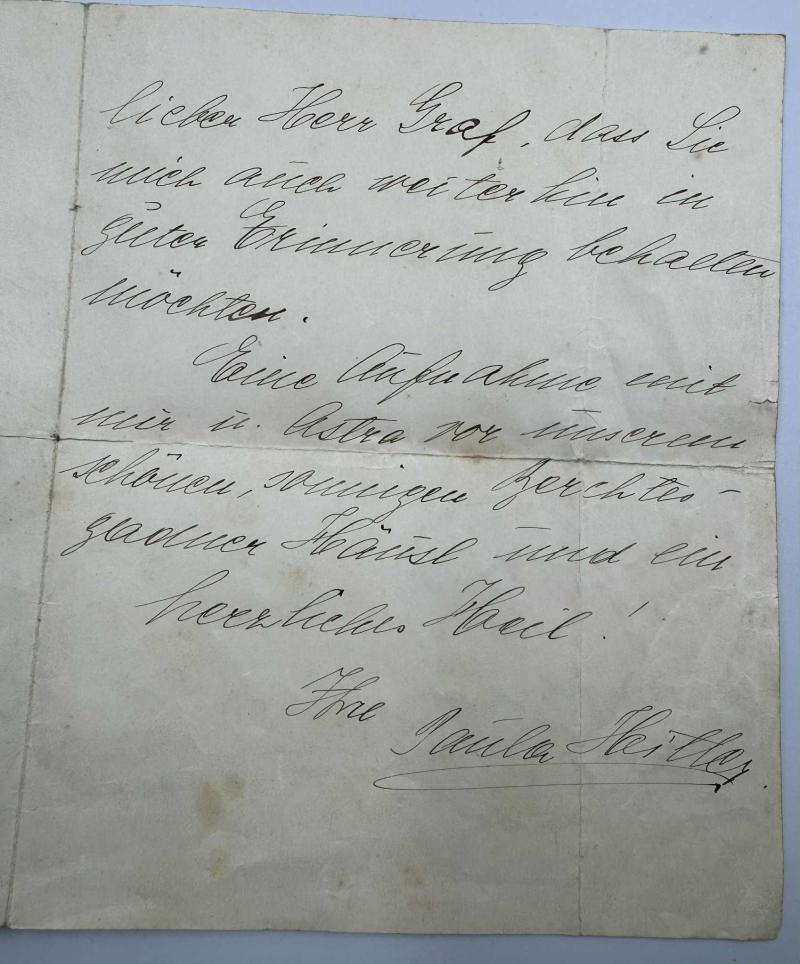 lieber Herr Graf, dass Sie
mich auch weiterhin in
guter Erinnerung behalten
möchten.
Eine Aufnahme mit
mir u. Astra vor unserem
schönen, sonnigen Berchtes-
gadner Häusl und ein
herzliches Heil!
Ihre
Paula Heitler.